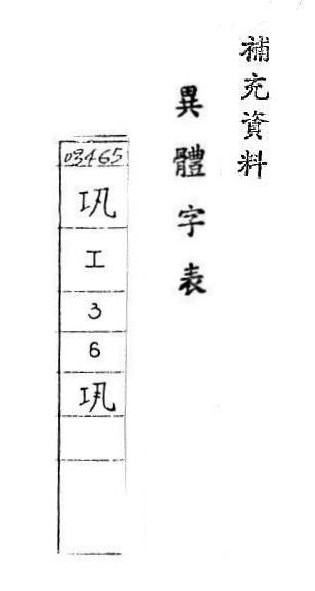 補充資料
異體字表
03465
巩
工
3
6
巩